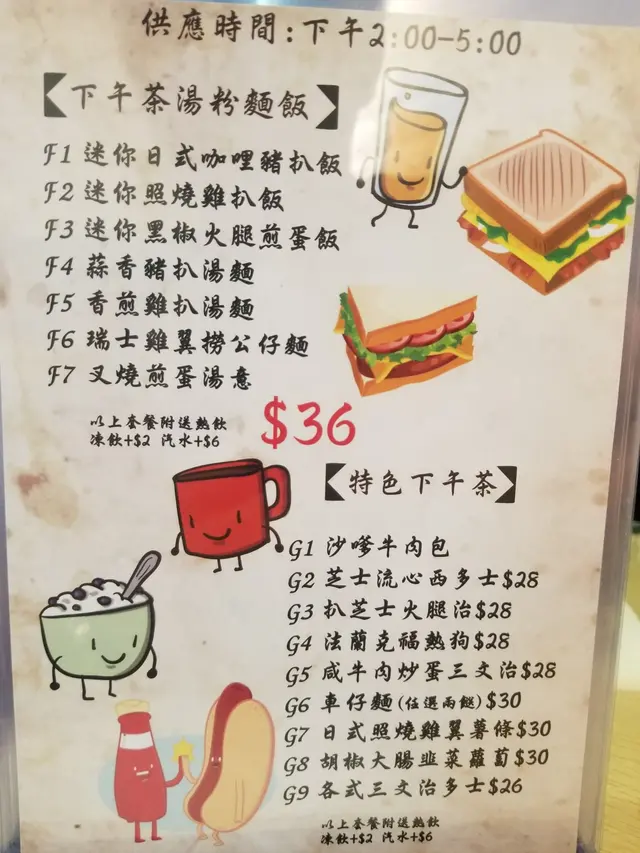 供應時間:下午2:00-5:00
下午茶湯粉麵飯
F1 迷你日式咖哩豬扒飯
F2 迷你照燒雞扒飯
F3 迷你黑椒火腿煎蛋飯
F4 蒜香豬扒湯麵
F5 香煎雞扒湯麵
F6 瑞士雞翼撈公仔麵
F7 叉燒煎蛋湯意
以上套餐附送熱飲
凍飲+$2 汽水+$6
$36
特色下午茶
G1 沙嗲牛肉包
G2 芝士流心西多士$28
G3 扒芝士火腿治$28
G4 法蘭克福熱狗$28
G5 咸牛肉炒蛋三文治$28
G6 車仔麵(任選兩餸)$30
G7 日式照燒雞翼薯條$30
G8 胡椒大腸韮菜蘿蔔$30
G9 各式三文治多士$26
以上套餐附送熱飲
凍飲+$2 汽水+$6